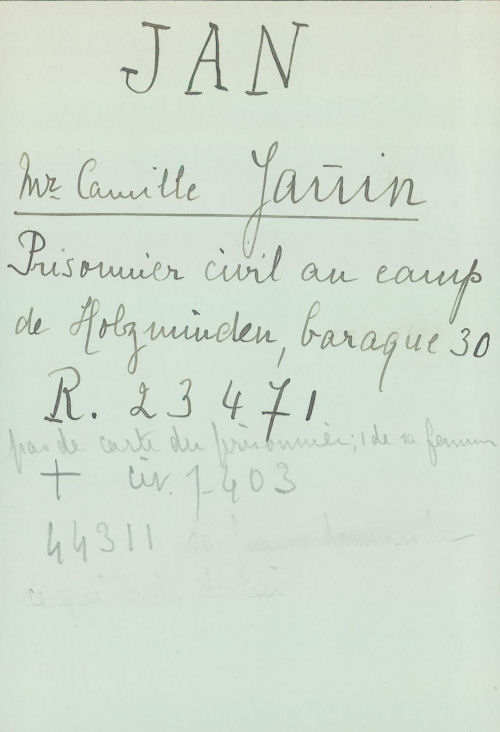 JAN
Mr Camille Jan̄in
Prisonnier civil au camp
de Holzminden, baraque 30
R. 23471
pas de carte du prisonnier; 1 de sa femme
+ civ. J-403
44311
ce qui reste de lui